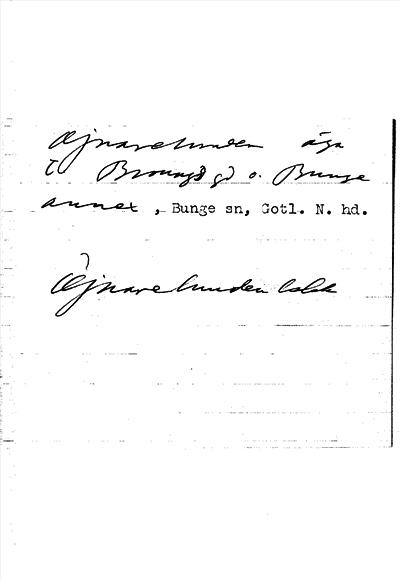 Ojnarelunden äga
t Bromags gd o. Bunge
annex, Bunge sn, Gotl. N. hd.
Ojnarelunden